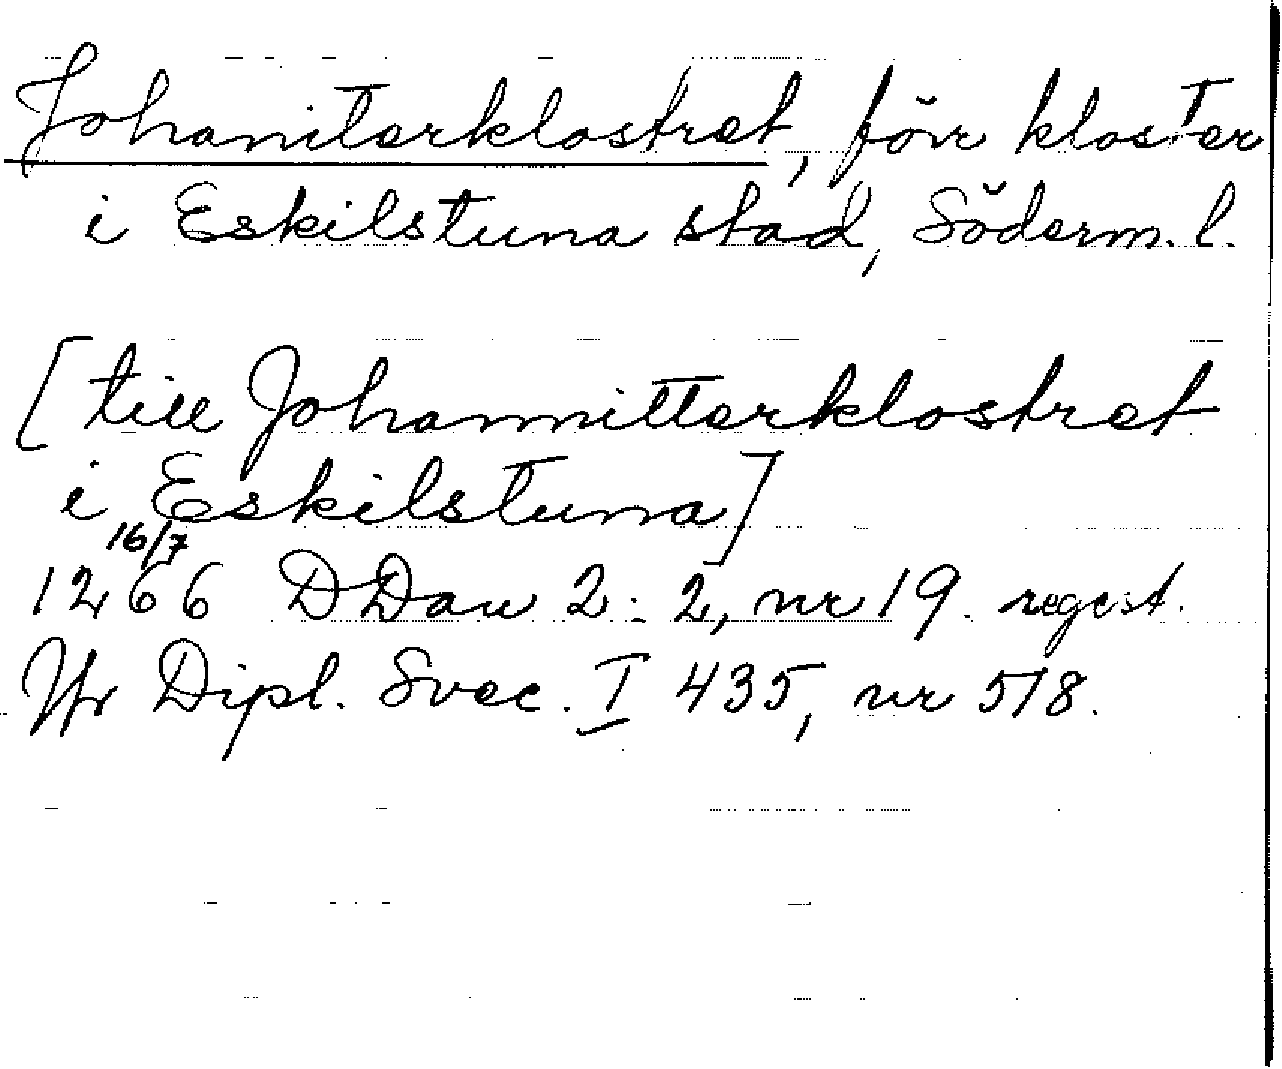 Johaniterklostret, förr kloster
i Eskilstuna stad, Söderm. l.
[till Johannitterklostret
i Eskilstuna]
16/7
1266 DDan 2:2, nr 19. regest.
Jfr Dipl. Svec. I 435, nr 518.